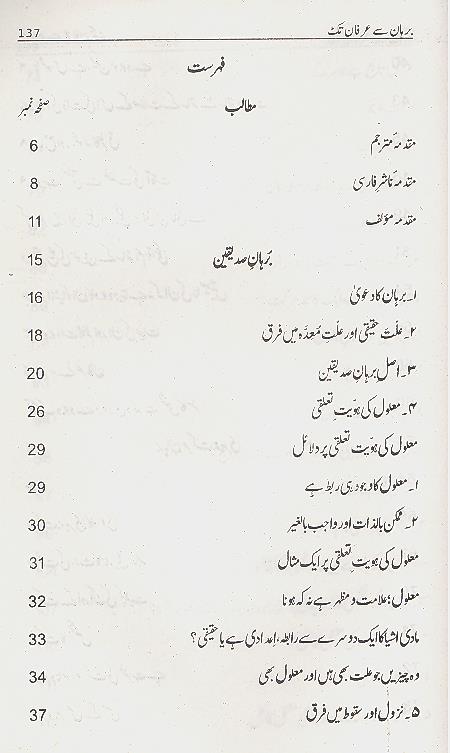 برہان سے عرفان تک 137
فہرست
مطالب صفحہ نمبر
مقدمہ مترجم 6
مقدمہ ناشر فارسی 8
مقدمہ مؤلف 11
بُرہانِ صدیقین 15
۱۔ برہان کا دعویٰ 16
۲۔ علّت حقیقی اور علّتِ مُعدّہ میں فرق 18
۳۔ اصل برہانِ صدیقین 20
۴۔ معلول کی ہویت تعلقی 26
معلول کی ہویت تعلقی پر دلائل 29
۱۔ معلول کا وجود ہی ربط ہے 29
۲۔ ممکن بالذات اور واجب بالغیر 30
معلول کی ہویت تعلقی پر ایک مثال 31
معلول؛ علامت و مظہر ہے نہ کہ ہونا 32
مادی اشیا کا ایک دوسرے سے رابطہ، اِعدادی ہے یا حقیقی؟ 33
وہ چیزیں جو علت بھی ہیں اور معلول بھی 34
۵۔ نزول اور سقوط میں فرق 37